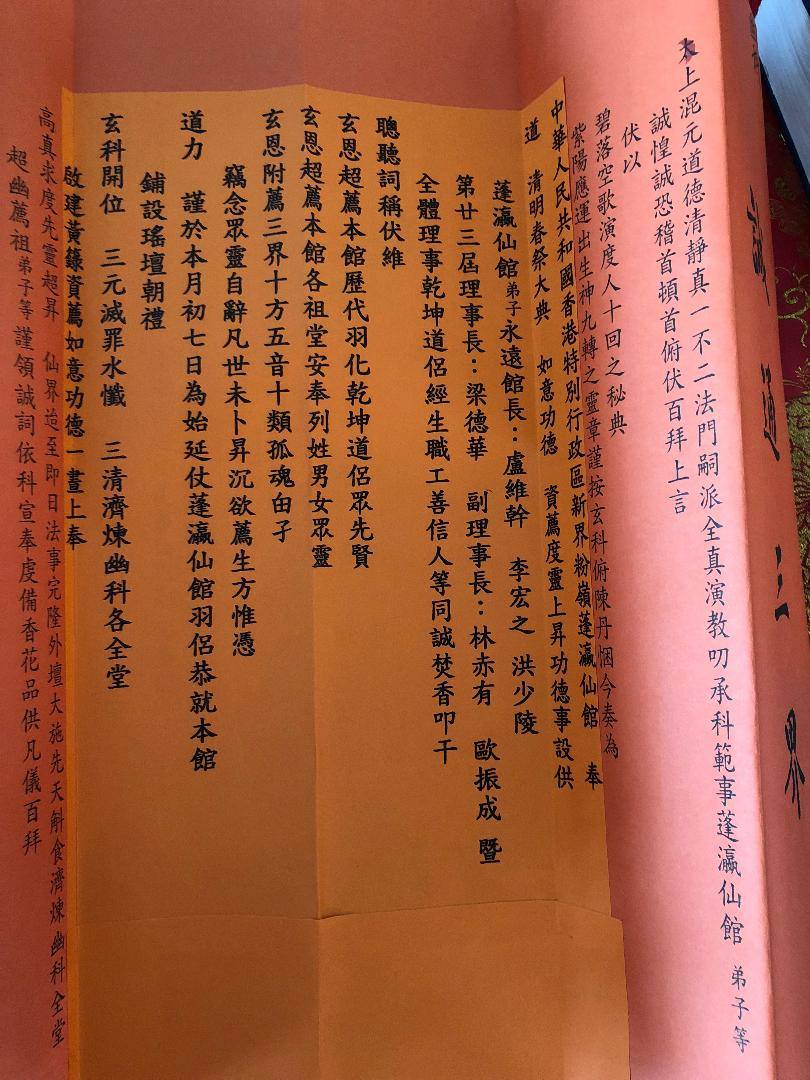 誠通三界
太上混元道德清靜真一不二法門嗣派全真演教叨承科範事蓬瀛仙館 弟子等
誠惶誠恐稽首頓首俯伏百拜上言
伏以
碧落空歌演度人十回之秘典
紫陽應連出生神九轉之靈章謹按玄科俯陳丹悃今奏為
中華人民共和國香港特別行政區新界粉嶺蓬瀛仙館 奉
道 清明春祭大典 如意功德 資薦度靈上昇功德事設供
蓬瀛仙館弟子永遠館長：盧維幹 李宏之 洪少陵
第廿三屆理事長：梁德華 副理事長：林赤有 歐振成 暨
全體理事乾坤道侶經生職工善信人等同誠焚香叩干
聰聽詞稱伏維
玄恩超薦本館歷代羽化乾坤道侶眾先賢
玄恩超薦本館各祖堂安奉列姓男女眾靈
玄恩附薦三界十方五音十類孤魂由子
竊念眾靈自辭凡世未卜昇沉欲薦生方惟憑
道力 謹於本月初七日為始延仗蓬瀛仙館羽侶恭就本館
鋪設瑤壇朝禮
玄科開位 三元滅罪水懺 三清濟煉幽科各全堂
啟建黃籙資薦如意功德一晝上奉
高真求度先靈超昇 仙界迨至即日法事完隆外壇大施先天斛食濟煉幽科全堂
超幽薦祖弟子等謹領誠詞依科宣奉虔備香花品供凡儀百拜